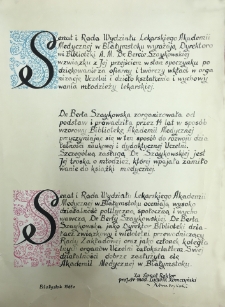 Senat i Rada Wydziału Lekarskiego Akademii
Medycznej w Białymstoku wyrażają Dyrektoro-
wi Biblioteki A.M. Dr Bercie Szaykowskiej
w związku z Jej przejściem w stan spoczynku po-
dziękowanie za ofiarny i twórczy wkład w orga-
nizację Uczelni i dzieło kształcenia i wychowy-
wania młodzieży lekarskiej.
Dr Berta Szaykowska zorganizowała od
podstaw i prowadziła przez 19 lat w sposób
wzorowy Bibliotekę Akademii Medycznej
przyczyniając się w ten sposób do rozwoju dzia-
łalności naukowej i dydaktycznej Uczelni.
Szczególną zasługą Dr Szaykowskiej jest
Jej troska o młodzież, którą wpajała zamiło-
wanie do książki medycznej.
Senat i Rada Wydziału Lekarskiego Akademii
Medycznej w Białymstoku oceniają wysoko
działalność polityczną, społeczną i zawodo-
wą Dr Berty Szaykowskiej. Dr Berta
Szaykowska jako Dyrektor Biblioteki, dzia-
łacz związkowy i wieloletni prezes
Rady Zakładowej oraz jako członek kolegiów
był organizatorem Uczelni całą swoją działalnością
dobrze zasłużyła się
Akademii Medycznej w Białymstoku.
Za Senat Rektor
Białystok 1969 r.